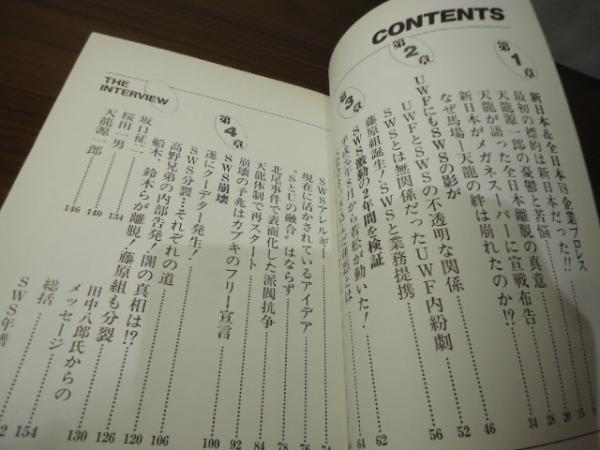 CONTENTS
第1章
新日本&全日本VS企業プロレス
最初の標的は新日本だった!!
天龍源一郎の憂鬱と苦悩
天龍が語った全日本離脱の真意
新日本がメガネスーパーに宣戦布告
なぜ馬場—天龍の絆は崩れたのか!?
34
46
第2章
UWFにもSWSの影が
UWFとSWSの不透明な関係
SWSとは無関係だったUWF内紛劇
藤原組誕生!SWSと業務提携
52
56
62
第3章
SWS激動の2年間を検証
64
SWSアレルギー
現在に活かされているアイデア
“SとUの融合”はならず
北尾事件で表面化した派閥抗争
天龍体制で再スタート
崩壊の予兆はカブキのフリー宣言
74
76
78
84
92
第4章
SWS崩壊
遂にクーデター発生!
SWS分裂…それぞれの道
高野兄弟の内部告発!闇の真相は!?
船木、鈴木らが離脱!藤原組も分裂
田中八郎氏からのメッセージ
総括
SWS年
100
106
120
126
130
154
THE INTERVIEW
坂口征二
桜田一男
天龍源一郎
134
140
146